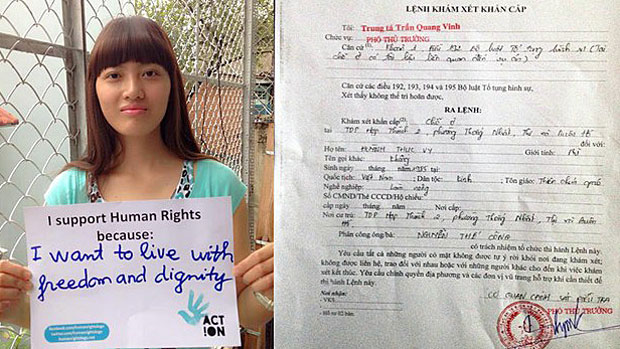 I support Human Rights
because:
I want to live with
freedom and dignity
ACT
!ON
LỆNH KHÁM XÉT KHẨN CẤP
Tôi: Trung tá Trần Quang Vinh
Chức vụ: PHÓ THỦ TRƯỞNG
Căn cứ
Căn cứ các điều 192, 193, 194 và 195 Bộ luật Tố tụng hình sự,
Xét thấy không thể trì hoãn được.
RA LỆNH:
Khám xét khẩn cấp Chỗ ở
tại TDP Hợp Thành 2, phường Thống Nhất, Thị xã Buôn Hồ
đối với:
Họ tên: HUỲNH THỤC VY Giới tính: Nữ
Tên gọi khác: Không
Sinh ngày tháng năm 1985 tại
Quốc tịch: Việt Nam; Dân tộc: Kinh Tôn giáo:
Nghề nghiệp: Làm nông
Số CMND/Thẻ CCCD/Hộ chiếu:
cấp ngày tháng năm Nơi cấp:
Nơi cư trú: TDP Hợp Thành 2, phường Thống Nhất, Thị xã Buôn
Phân công ông/bà: NGUYỄN THẾ CÔNG
có trách nhiệm tổ chức thi hành Lệnh này.
Yêu cầu tất cả những người có mặt không được tự ý rời khỏi nơi đang khám xét;
không được liên hệ, trao đổi với nhau hoặc với những người khác cho đến khi việc khám
xét kết thúc. Yêu cầu chính quyền địa phương và các đơn vị vũ trang hỗ trợ khi cần thiết để
thi hành Lệnh này.
Nơi nhận:
CƠ QUAN CẢNH SÁT ĐIỀU TRA
PHÓ THỦ TRƯỞNG